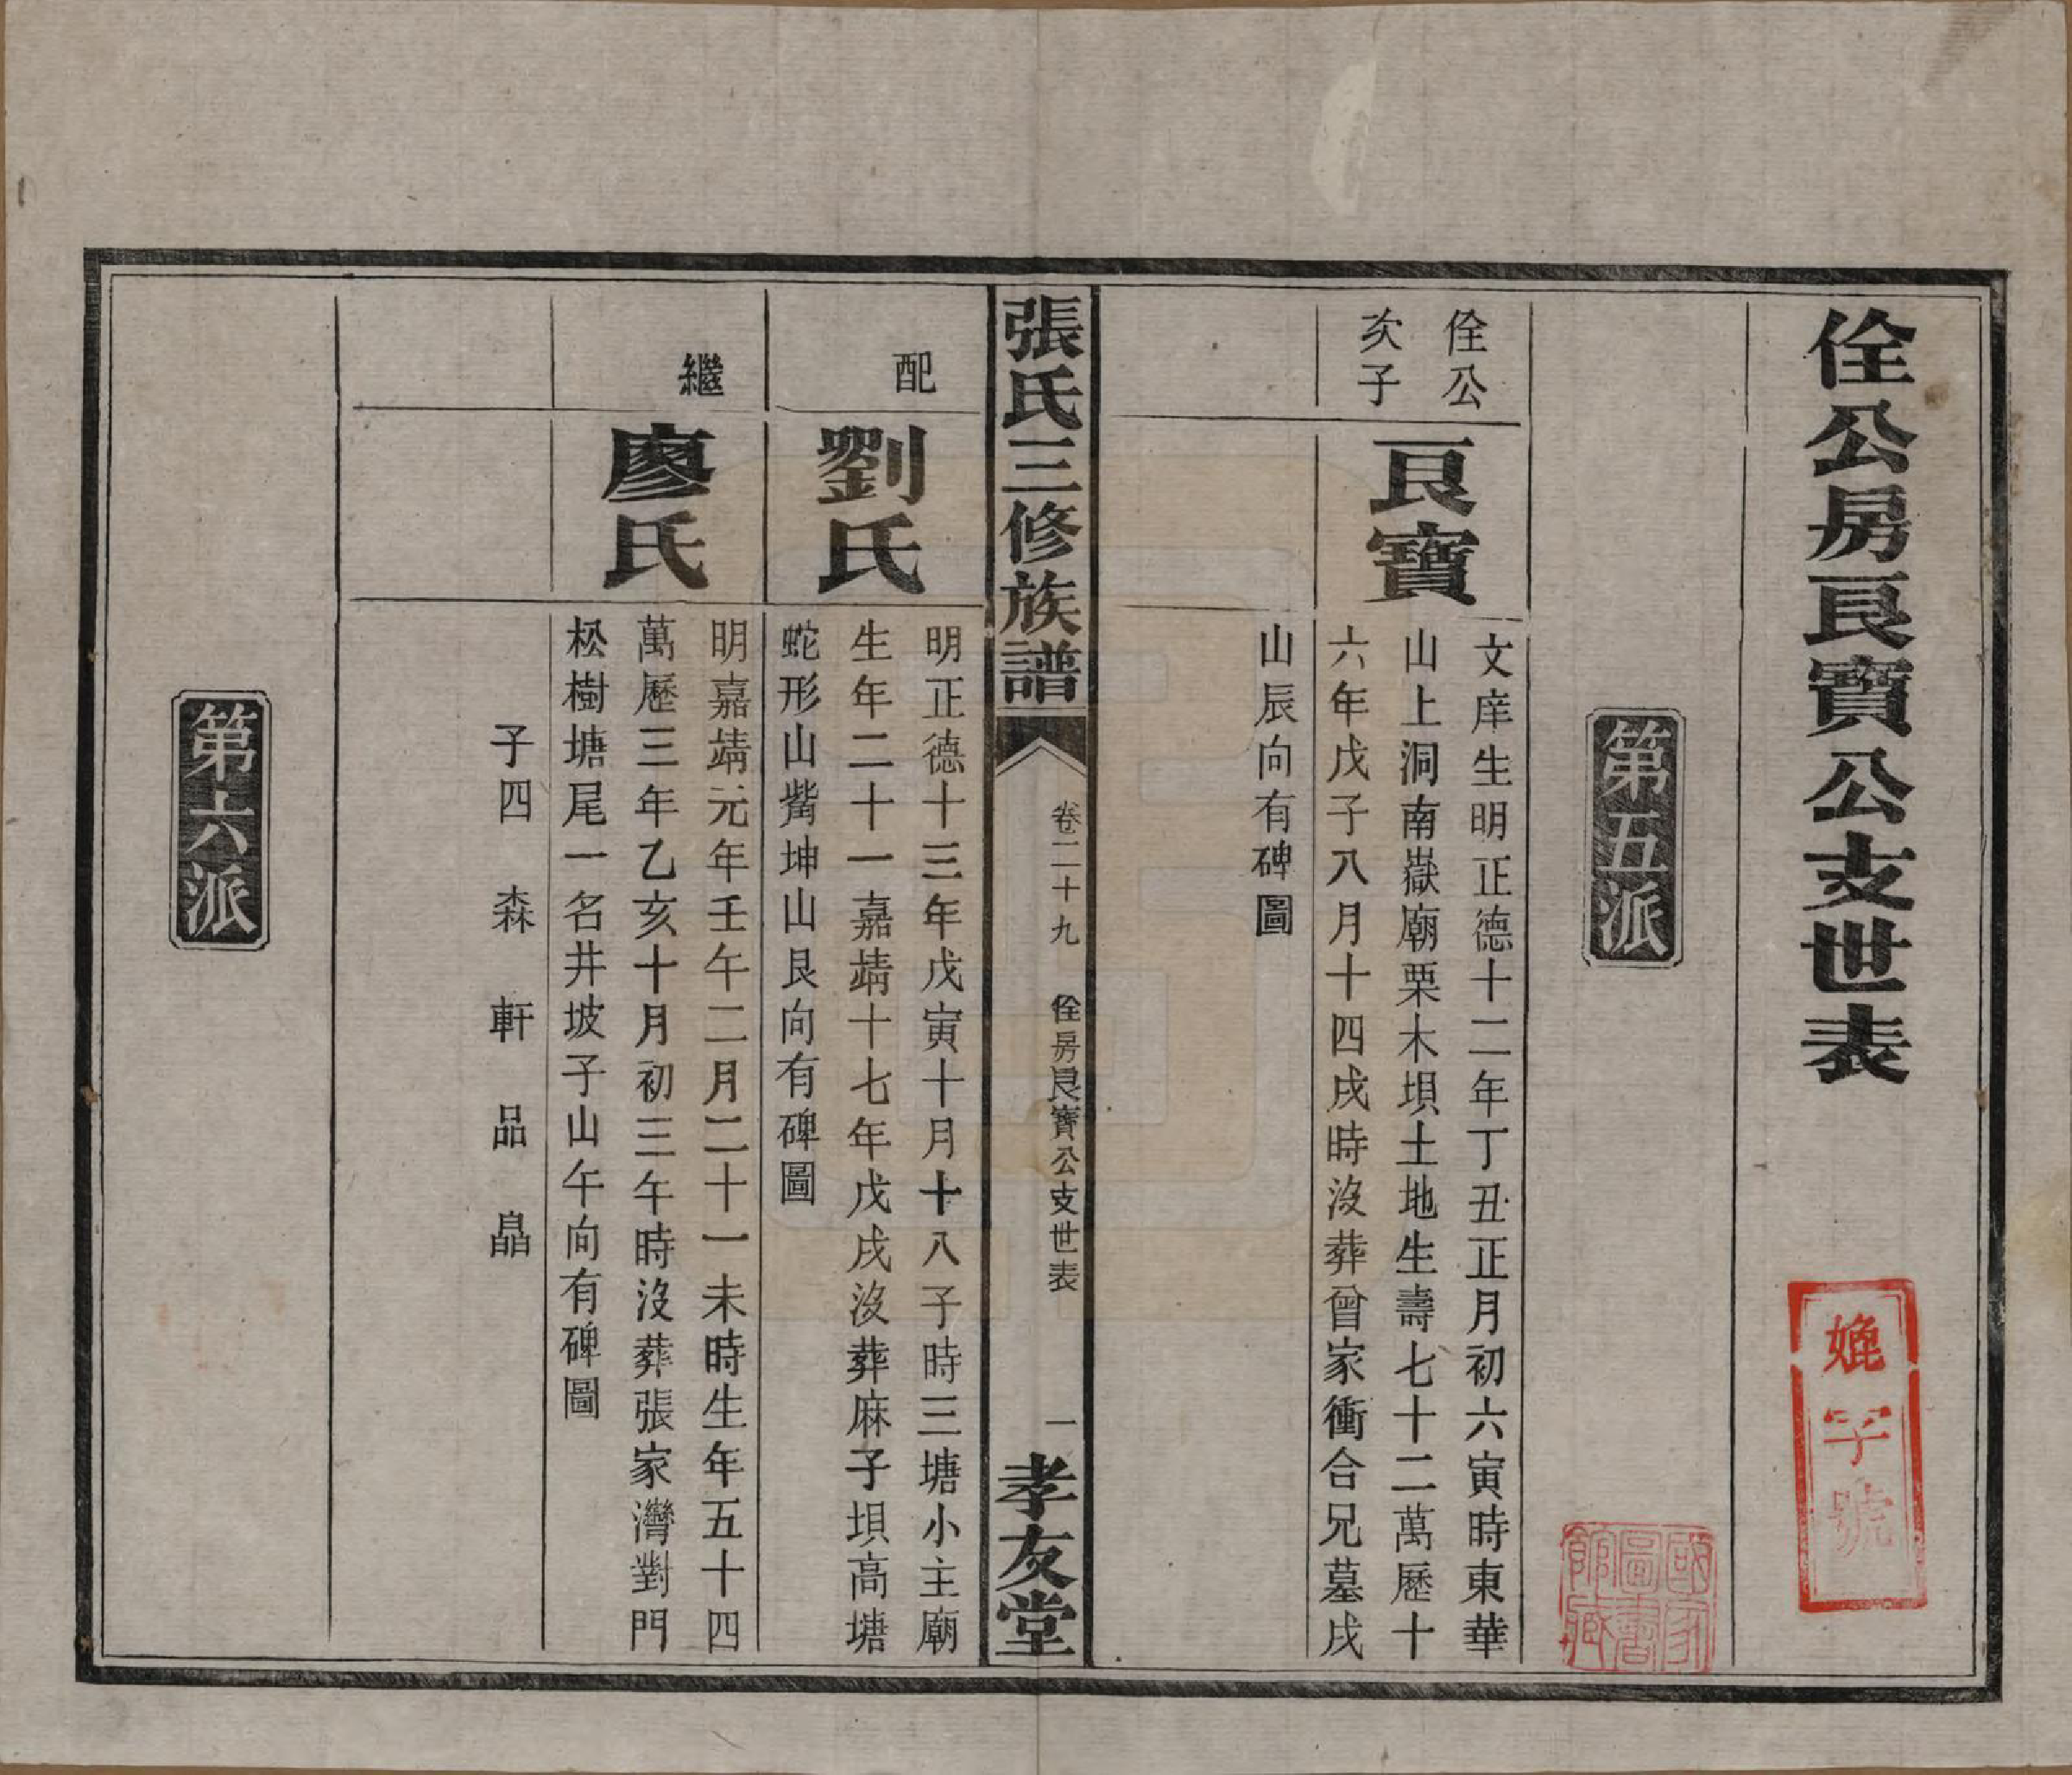 佺公房良寶公支世表
婏字號
第五派
國家圖書館藏
佺公
次子
良寶
文庠生明正德十二年丁丑正月初六寅時東華
山上洞南嶽廟栗木垻土地生壽七十二萬歷十
六年戊子八月十四戌時沒葬曾家衝合兄墓戌
山辰向有碑圖
張氏三修族譜
卷二十九
佺房良寶公支世表
一
孝友堂
配
劉氏
明正德十三年戊寅十月十八子時三塘小主廟
生年二十一嘉靖十七年戊戌沒葬麻子垻高塘
蛇形山觜坤山艮向有碑圖
繼
廖氏
明嘉靖元年壬午二月二十一未時生年五十四
萬歷三年乙亥十月初三午時沒葬張家灣對門
松樹塘尾一名井坡子山午向有碑圖
子四 森 軒 品 晶
第六派